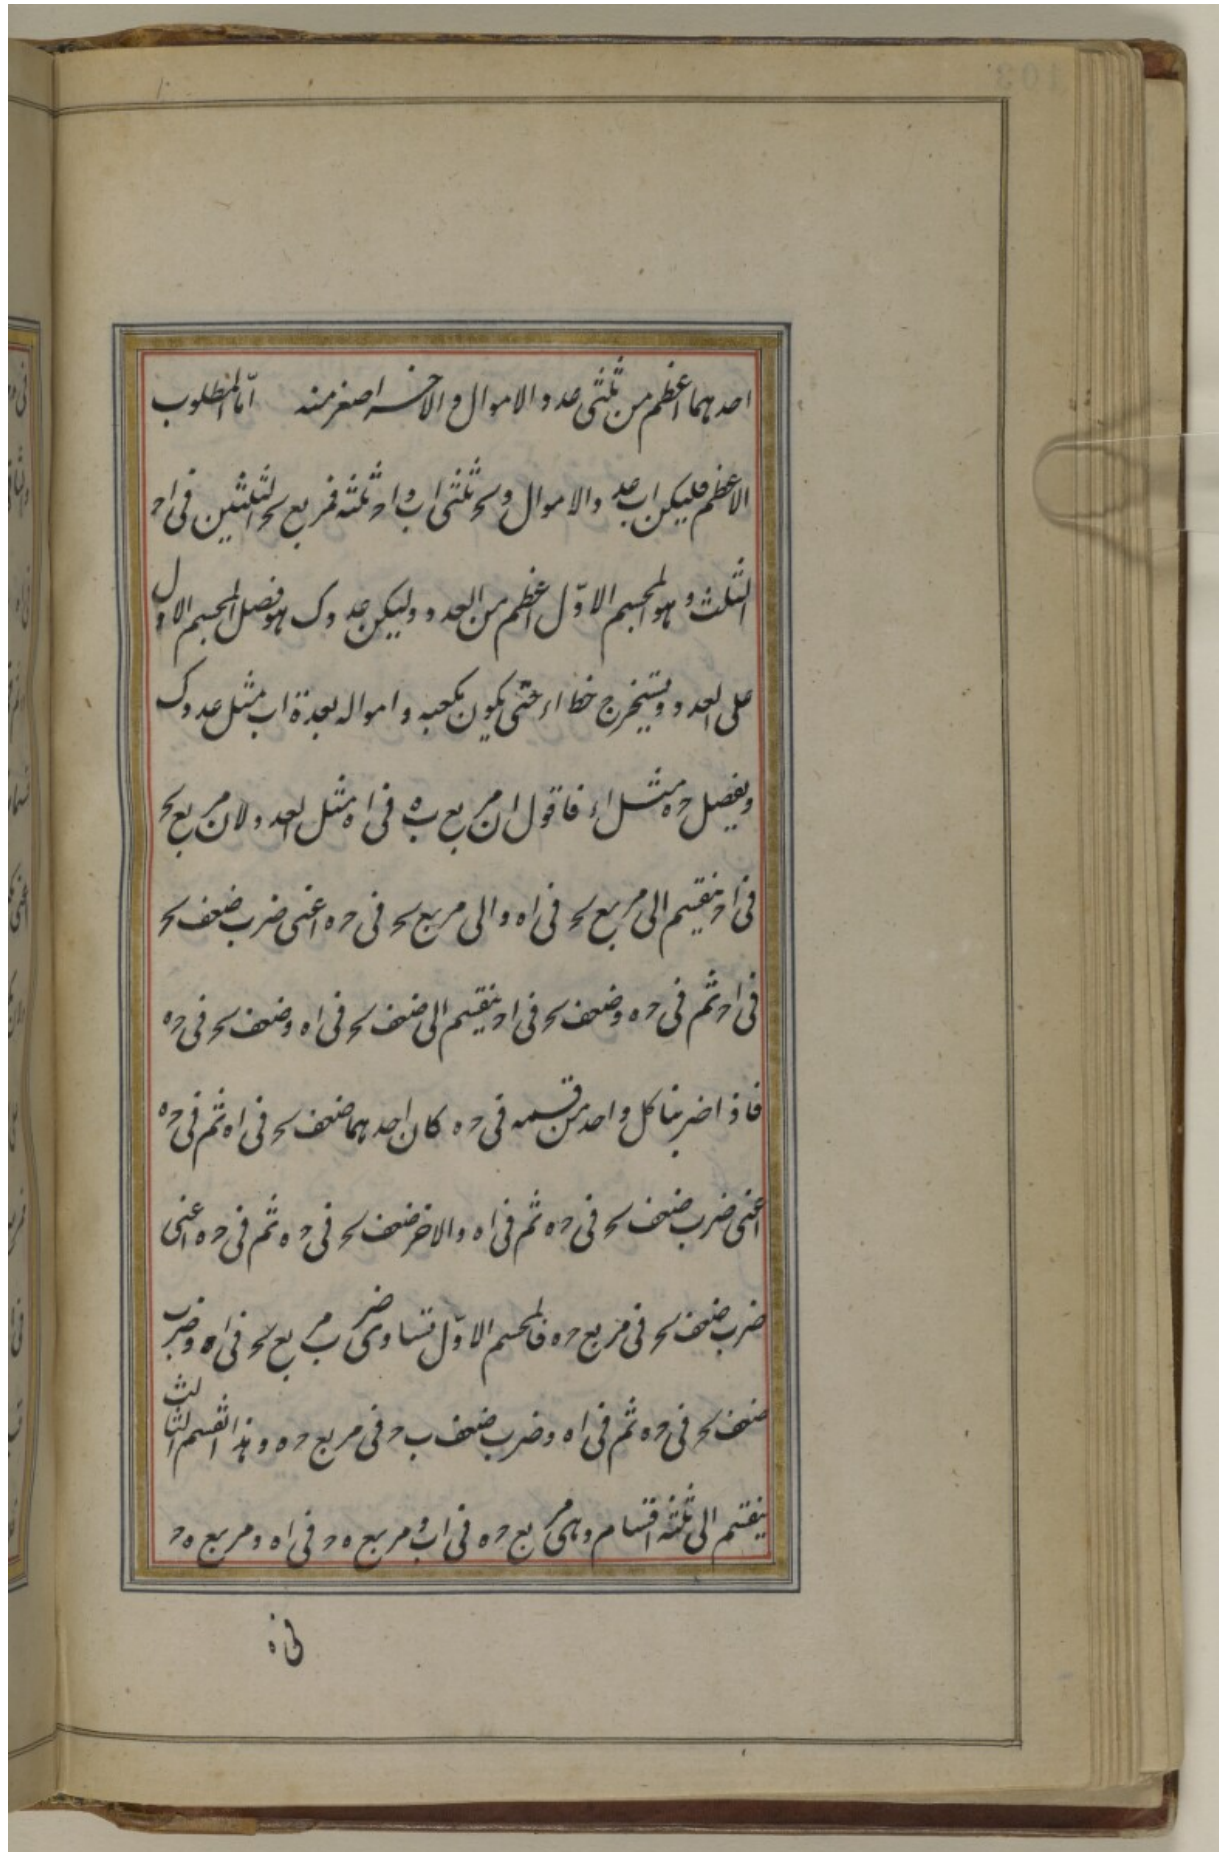 احدهما اعظم من ثلثى عدد الاموال والاخر اصغر منه امّا المطلوب
الاعظم فليكن اب عدد الاموال و ٮح ثلثى اب و اح ثلثه فمربع ٮح الثلثين فى اح
الثلث وهو المجسم الاوّل اعظم من العدد وليكن عدد ك هو فضل المجسم الاول
على العدد ويستخرج خط اء حتى يكون مكعبه و امواله بعدة اب مثل عدد ك
ويفصل ح ه مثل اء فاقول ان مربع ب ه فى ا ه مثل العدد ولان مربع ٮح
فى اح ينقسم الى مربع ٮح فى ا ه والى مربع ٮح فى ح ه اعنى ضرب ضعف ٮح
فى اح ثم فى ح ه وضعف ٮح فى اح ينقسم الى ضعف ٮح فى ا ه وضعف ٮح فى ح ه
فاذا ضربنا كل واحد من قسمه فى ح ه كان احدهما ضعف ٮح فى ا ه ثم فى ح ه
اعنى ضرب ضعف ٮح فى ح ه ثم فى ا ه والاخر ضعف ٮح فى ح ه ثم فى ح ه اعنى
ضرب ضعف ٮح فى مربع ح ه فالمجسم الاوّل تساوى ضرب مربع ٮح فى ا ه وضرب
ضعف ٮح فى ح ه ثم فى ا ه وضرب ضعف ب ح فى مربع ح ه وهذا القسم الثالث
ينقسم الى ثلثة اقسام وهى مربع ح ه فى اب و مربع ه ح فى ا ه ومربع ه ح
فى ه